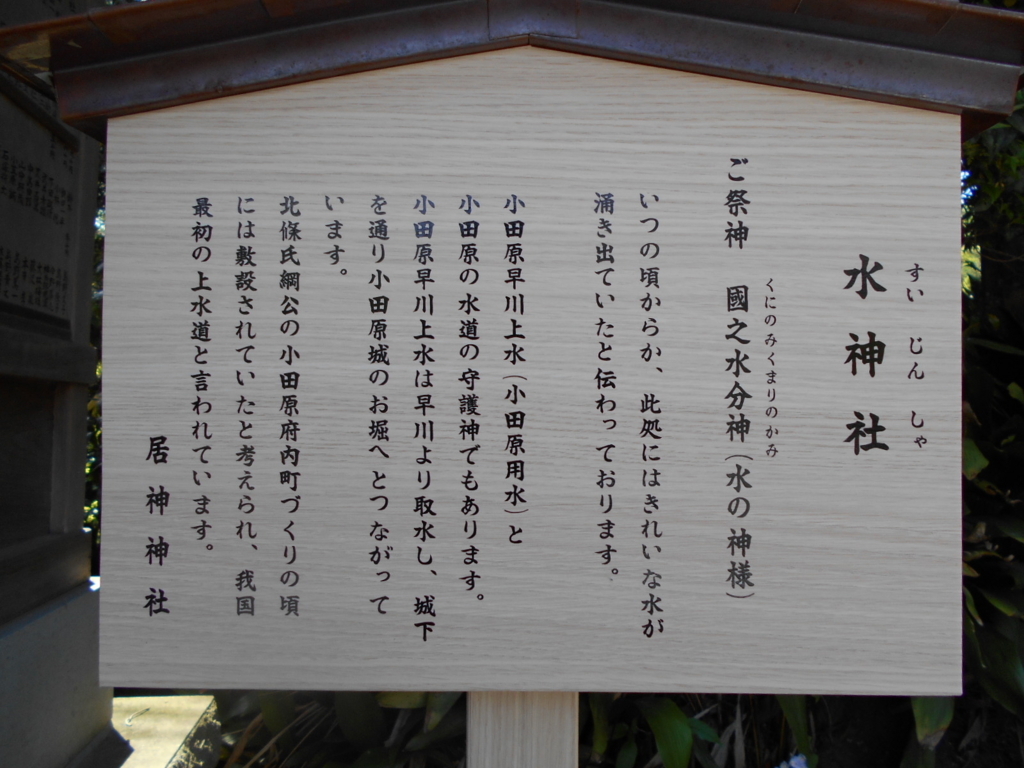 すい じん しゃ
水神社
くにのみくまりのかみ
ご祭神 國之水分神(水の神様)
いつの頃からか、此処にはきれいな水が
涌き出ていたと伝わっております。
小田原早川上水(小田原用水)と
小田原の水道の守護神でもあります。
小田原早川上水は早川より取水し、城下
を通り小田原城のお堀へとつながって
います。
北條氏綱公の小田原府内町づくりの頃
には敷設されていたと考えられ、我国
最初の上水道と言われています。
居神神社